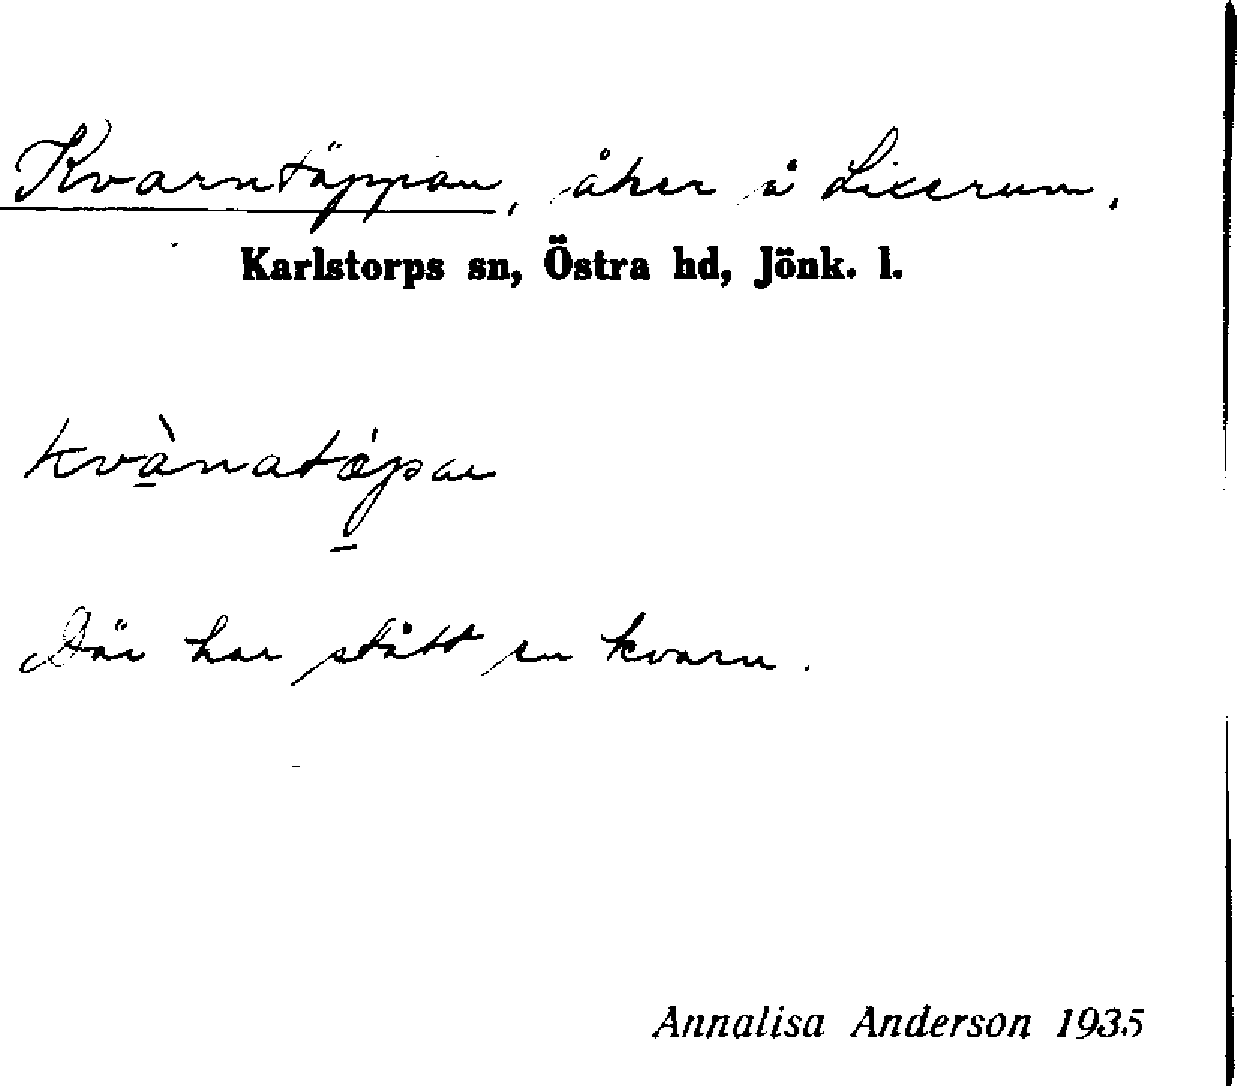 Kvarntäppan, åker å Lixerum.
Karlstorps sn, Östra hd, Jönk. l.
kvànatǽpan
Där har stått en kvarn.
Annalisa Anderson 1935